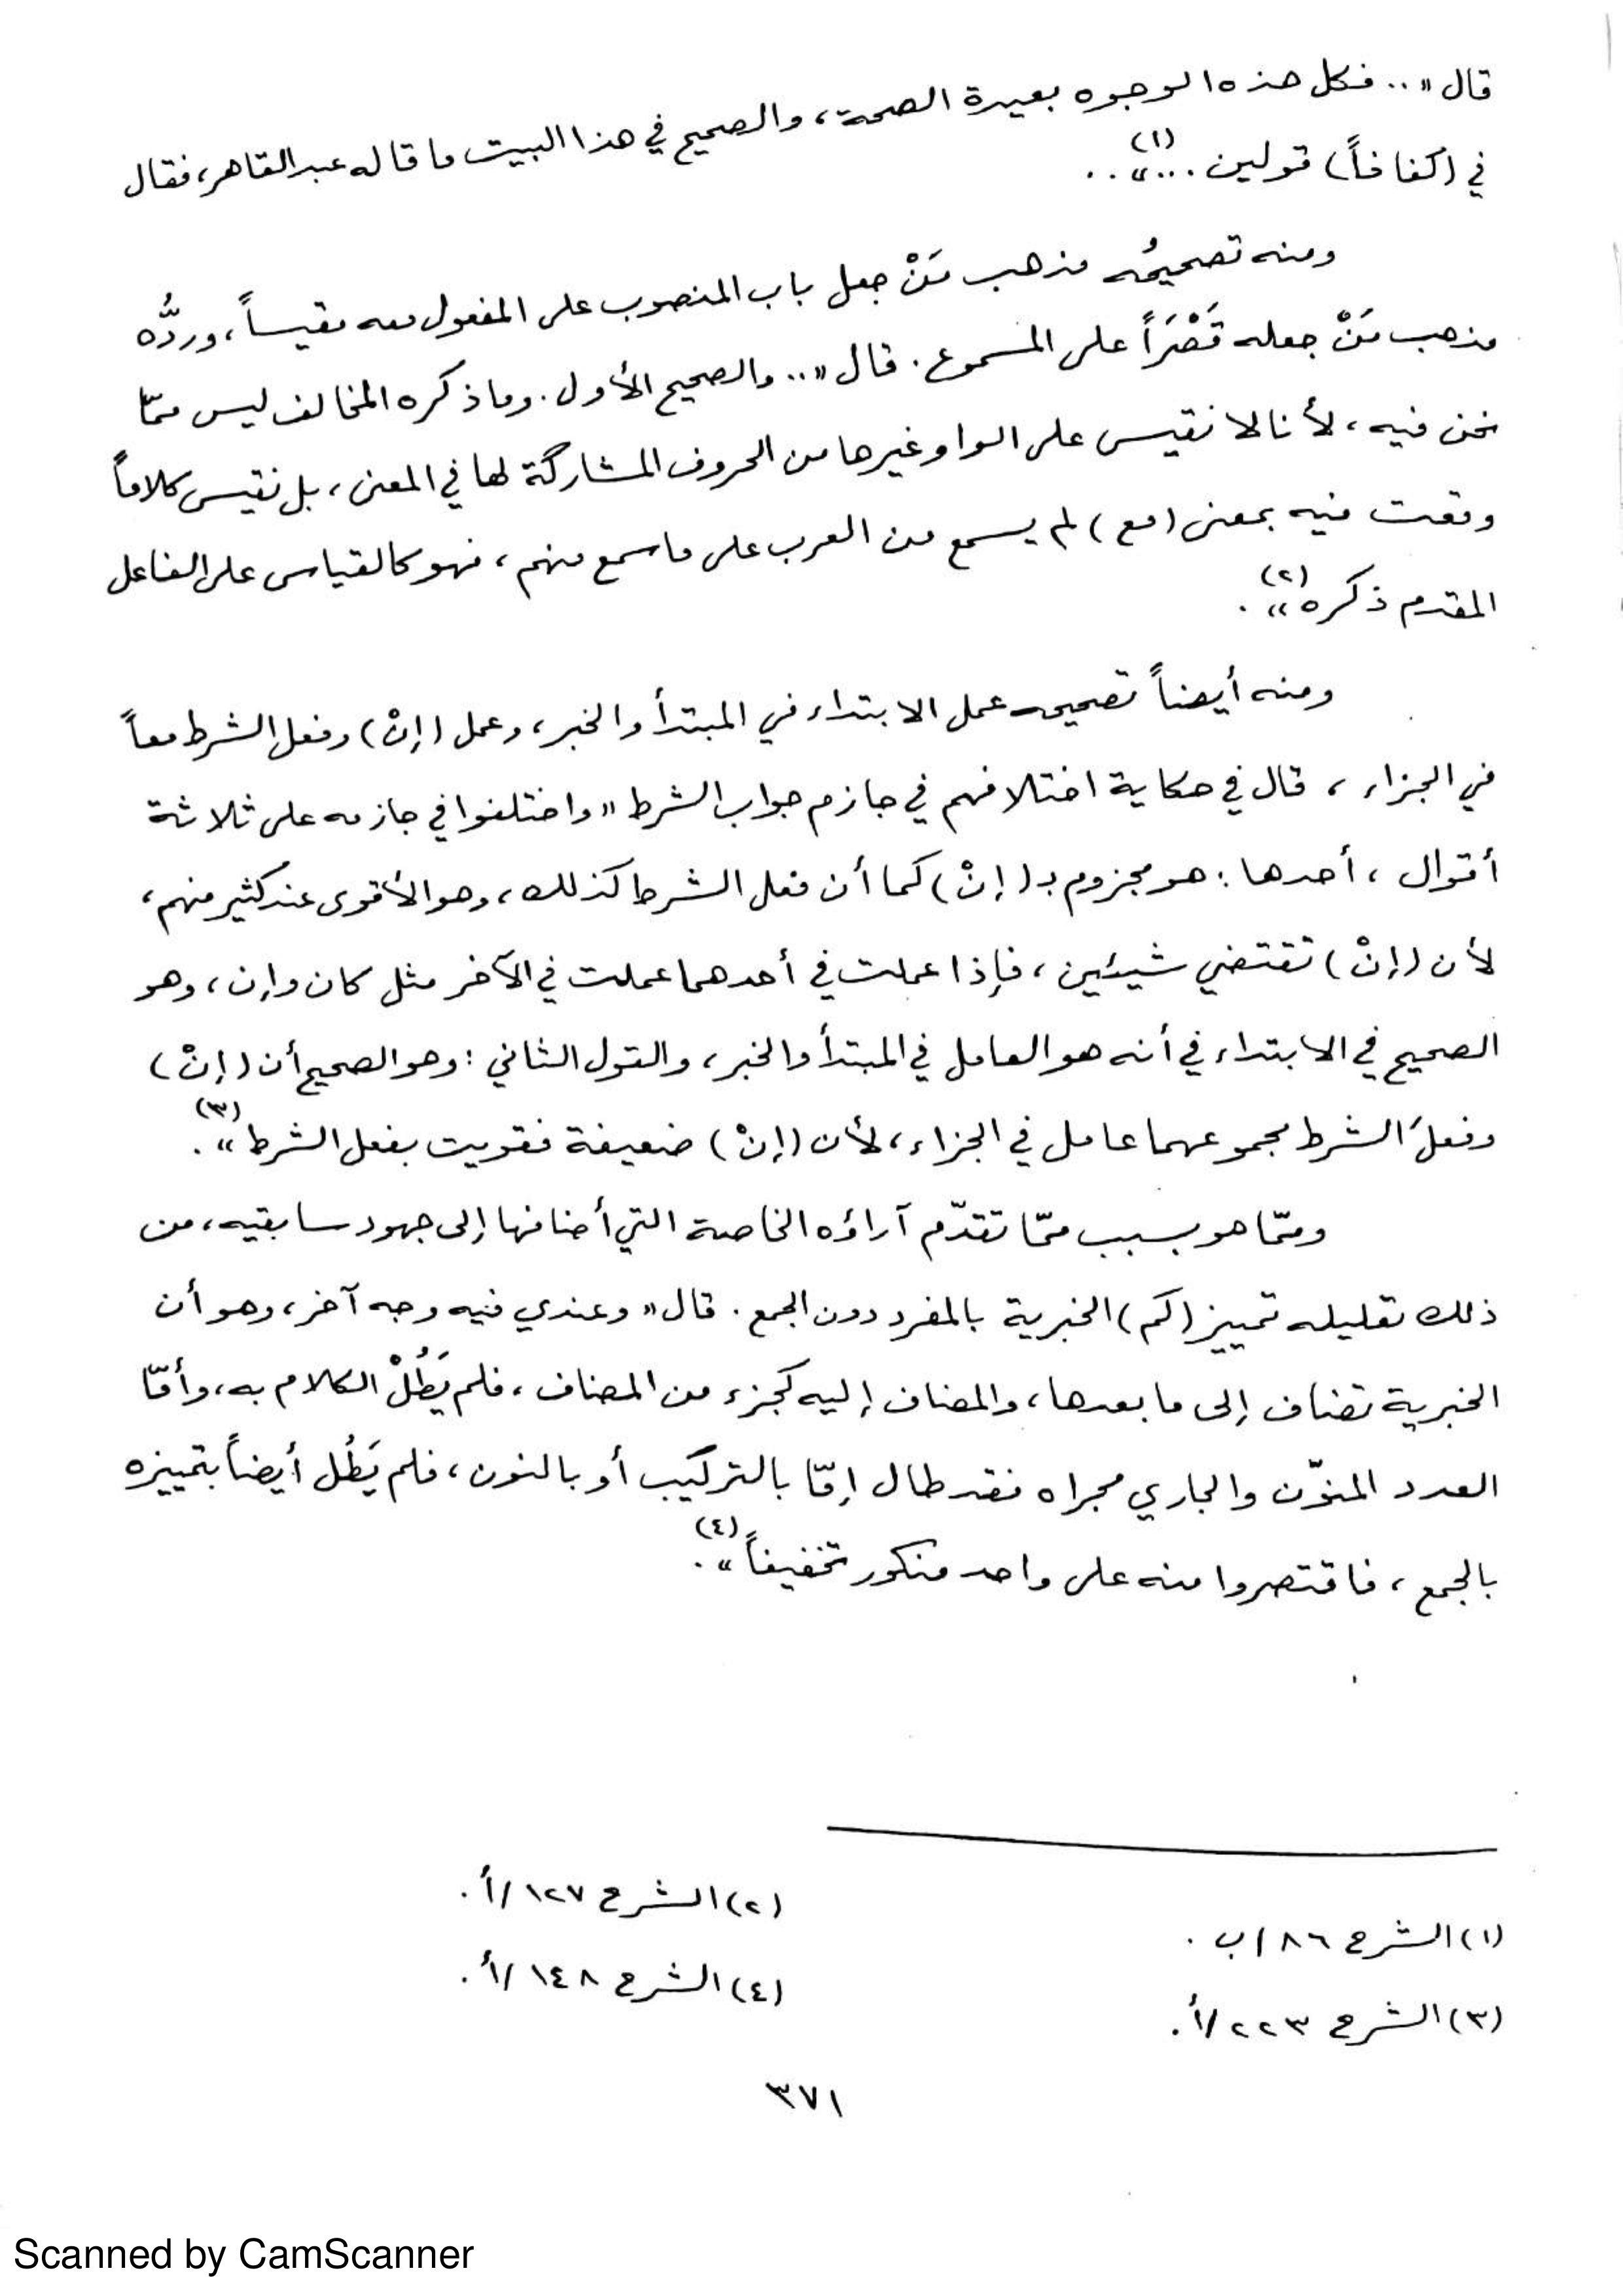 قال «.. فكل هذه الوجوه بعيدة الصحة، والصحيح في هذا البيت ما قاله عبدالقاهر، فقال
في (كفافاً) قولين ...»(١) ..
ومنه تصحيحُه مذهب مَنْ جعل باب المنصوب على المفعول معه مقيساً، وردُّه
مذهب مَنْ جعله قَصْرَاً على المسموع. قال «.. والصحيح الأول. وما ذكره المخالف ليس ممّا
نحن فيه، لأنا لا نقيس على الواو غيرها من الحروف المشاركة لها في المعنى، بل نقيس كلاماً
وقعت فيه بمعنى (مع) لم يسمع من العرب على ما سمع منهم، فهو كالقياس على الفاعل
المقدم ذكره»(٢) .
ومنه أيضاً تصحيحه عمل الابتداء في المبتدأ والخبر، وعمل (إنْ) وفعل الشرط معاً
في الجزاء، قال في حكاية اختلافهم في جازم جواب الشرط «واختلفوا في جازمه على ثلاثة
أقوال، أحدها: هو مجزوم بـ (إنْ) كما أن فعل الشرط كذلك، وهو الأقوى عند كثير منهم،
لأن (إنْ) تقتضي شيئين، فإذا عملت في أحدهما عملت في الآخر مثل كان وإن، وهو
الصحيح في الابتداء في أنه هو العامل في المبتدأ والخبر، والقول الثاني: وهو الصحيح أن (إنْ)
وفعلَ الشرط مجموعهما عامل في الجزاء، لأن (إنْ) ضعيفة فقويت بفعل الشرط»(٣) .
وممّا هو بسبب ممّا تقدّم آراؤه الخاصة التي أضافها إلى جهود سابقيه، من
ذلك تعليله تمييز (كم) الخبرية بالمفرد دون الجمع. قال «وعندي فيه وجه آخر، وهو أن
الخبرية تضاف إلى ما بعدها، والمضاف إليه كجزء من المضاف، فلم يَطُلْ الكلام به، وأمّا
العدد المنوّن والجاري مجراه فقد طال إمّا بالتركيب أو بالنون، فلم يَطُل أيضاً بتمييزه
بالجمع، فاقتصروا منه على واحد منكور تخفيفاً»(٤).
(١) الشرح ٨٦/ب .
(٢) الشرح ١٢٧/أ .
(٣) الشرح ٢٢٣/أ .
(٤) الشرح ١٤٨/أ .
٣٧١
Scanned by CamScanner